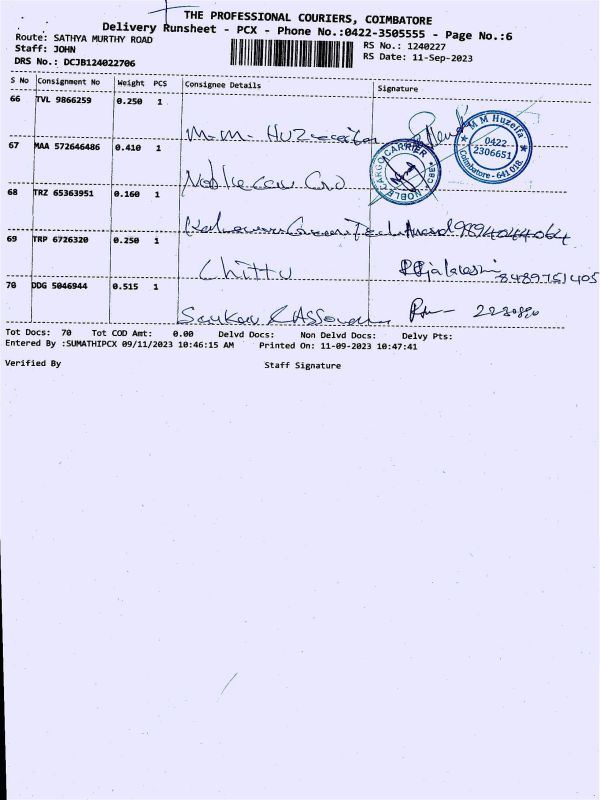 THE PROFESSIONAL COURIERS, COIMBATORE
Delivery Runsheet - PCX - Phone No.:0422-3505555 - Page No.:6
Route: SATHYA MURTHY ROAD
RS No.: 1240227
Staff: JOHN
RS Date: 11-Sep-2023
DRS No.: DCJB124022706
S No Consignment No Weight PCS Consignee Details Signature
66 TVL 9866259 0.250 1
M.M. HUZ
M M Huzeifa
0422
2306651
Coimbatore - 641 018.
67 MAA 572646486 0.410 1
NOBLE CARGO CARRIER
CBE
68 TRZ 65363951 0.160 1
9894044064
69 TRP 6726320 0.250 1
Chittu
8489751405
70 DDG 5046944 0.515 1
Tot Docs: 70 Tot COD Amt: 0.00 Delvd Docs: Non Delvd Docs: Delvy Pts:
Entered By :SUMATHIPCX 09/11/2023 10:46:15 AM Printed On: 11-09-2023 10:47:41
Verified By Staff Signature